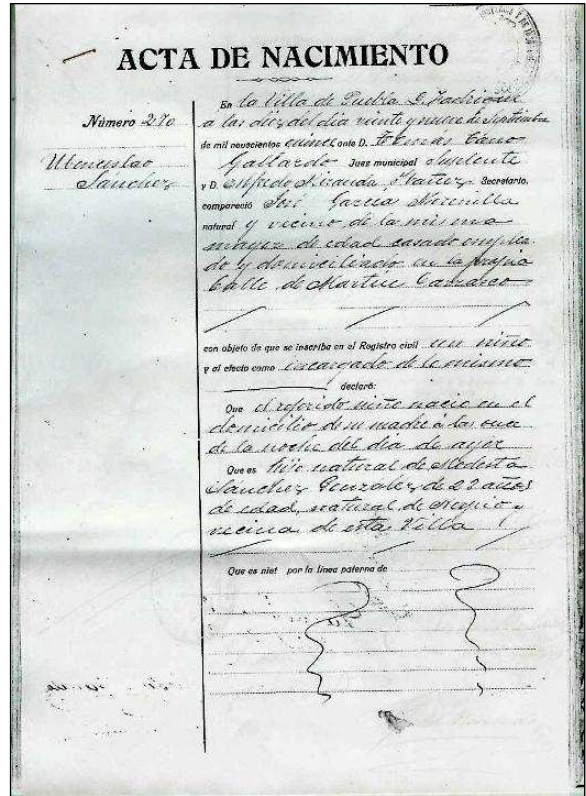 ACTA DE NACIMIENTO
Número 270
Wenceslao
Sánchez
En la Villa de Puebla D. Fadrique
a las diez del día veinte y nueve de Septiembre
de mil novecientos quince, ante D. Tomás Cano
Gallardo Juez municipal Suplente
y D. Alfredo Miranda Ibañez Secretario,
compareció José García
natural y vecino de la misma
mayor de edad casado emplea
do y domiciliado en la propia
Calle de Martín Carrasco
con objeto de que se inscriba en el Registro civil un niño
y al efecto como encargado de lo mismo
declaró:
Que el referido niño nació en el
domicilio de su madre a las once
de la noche del día de ayer
Que es hijo natural de Modesta
Sánchez González de 22 años
de edad, natural de y
vecina de esta Villa
Que es niet por la línea paterna de